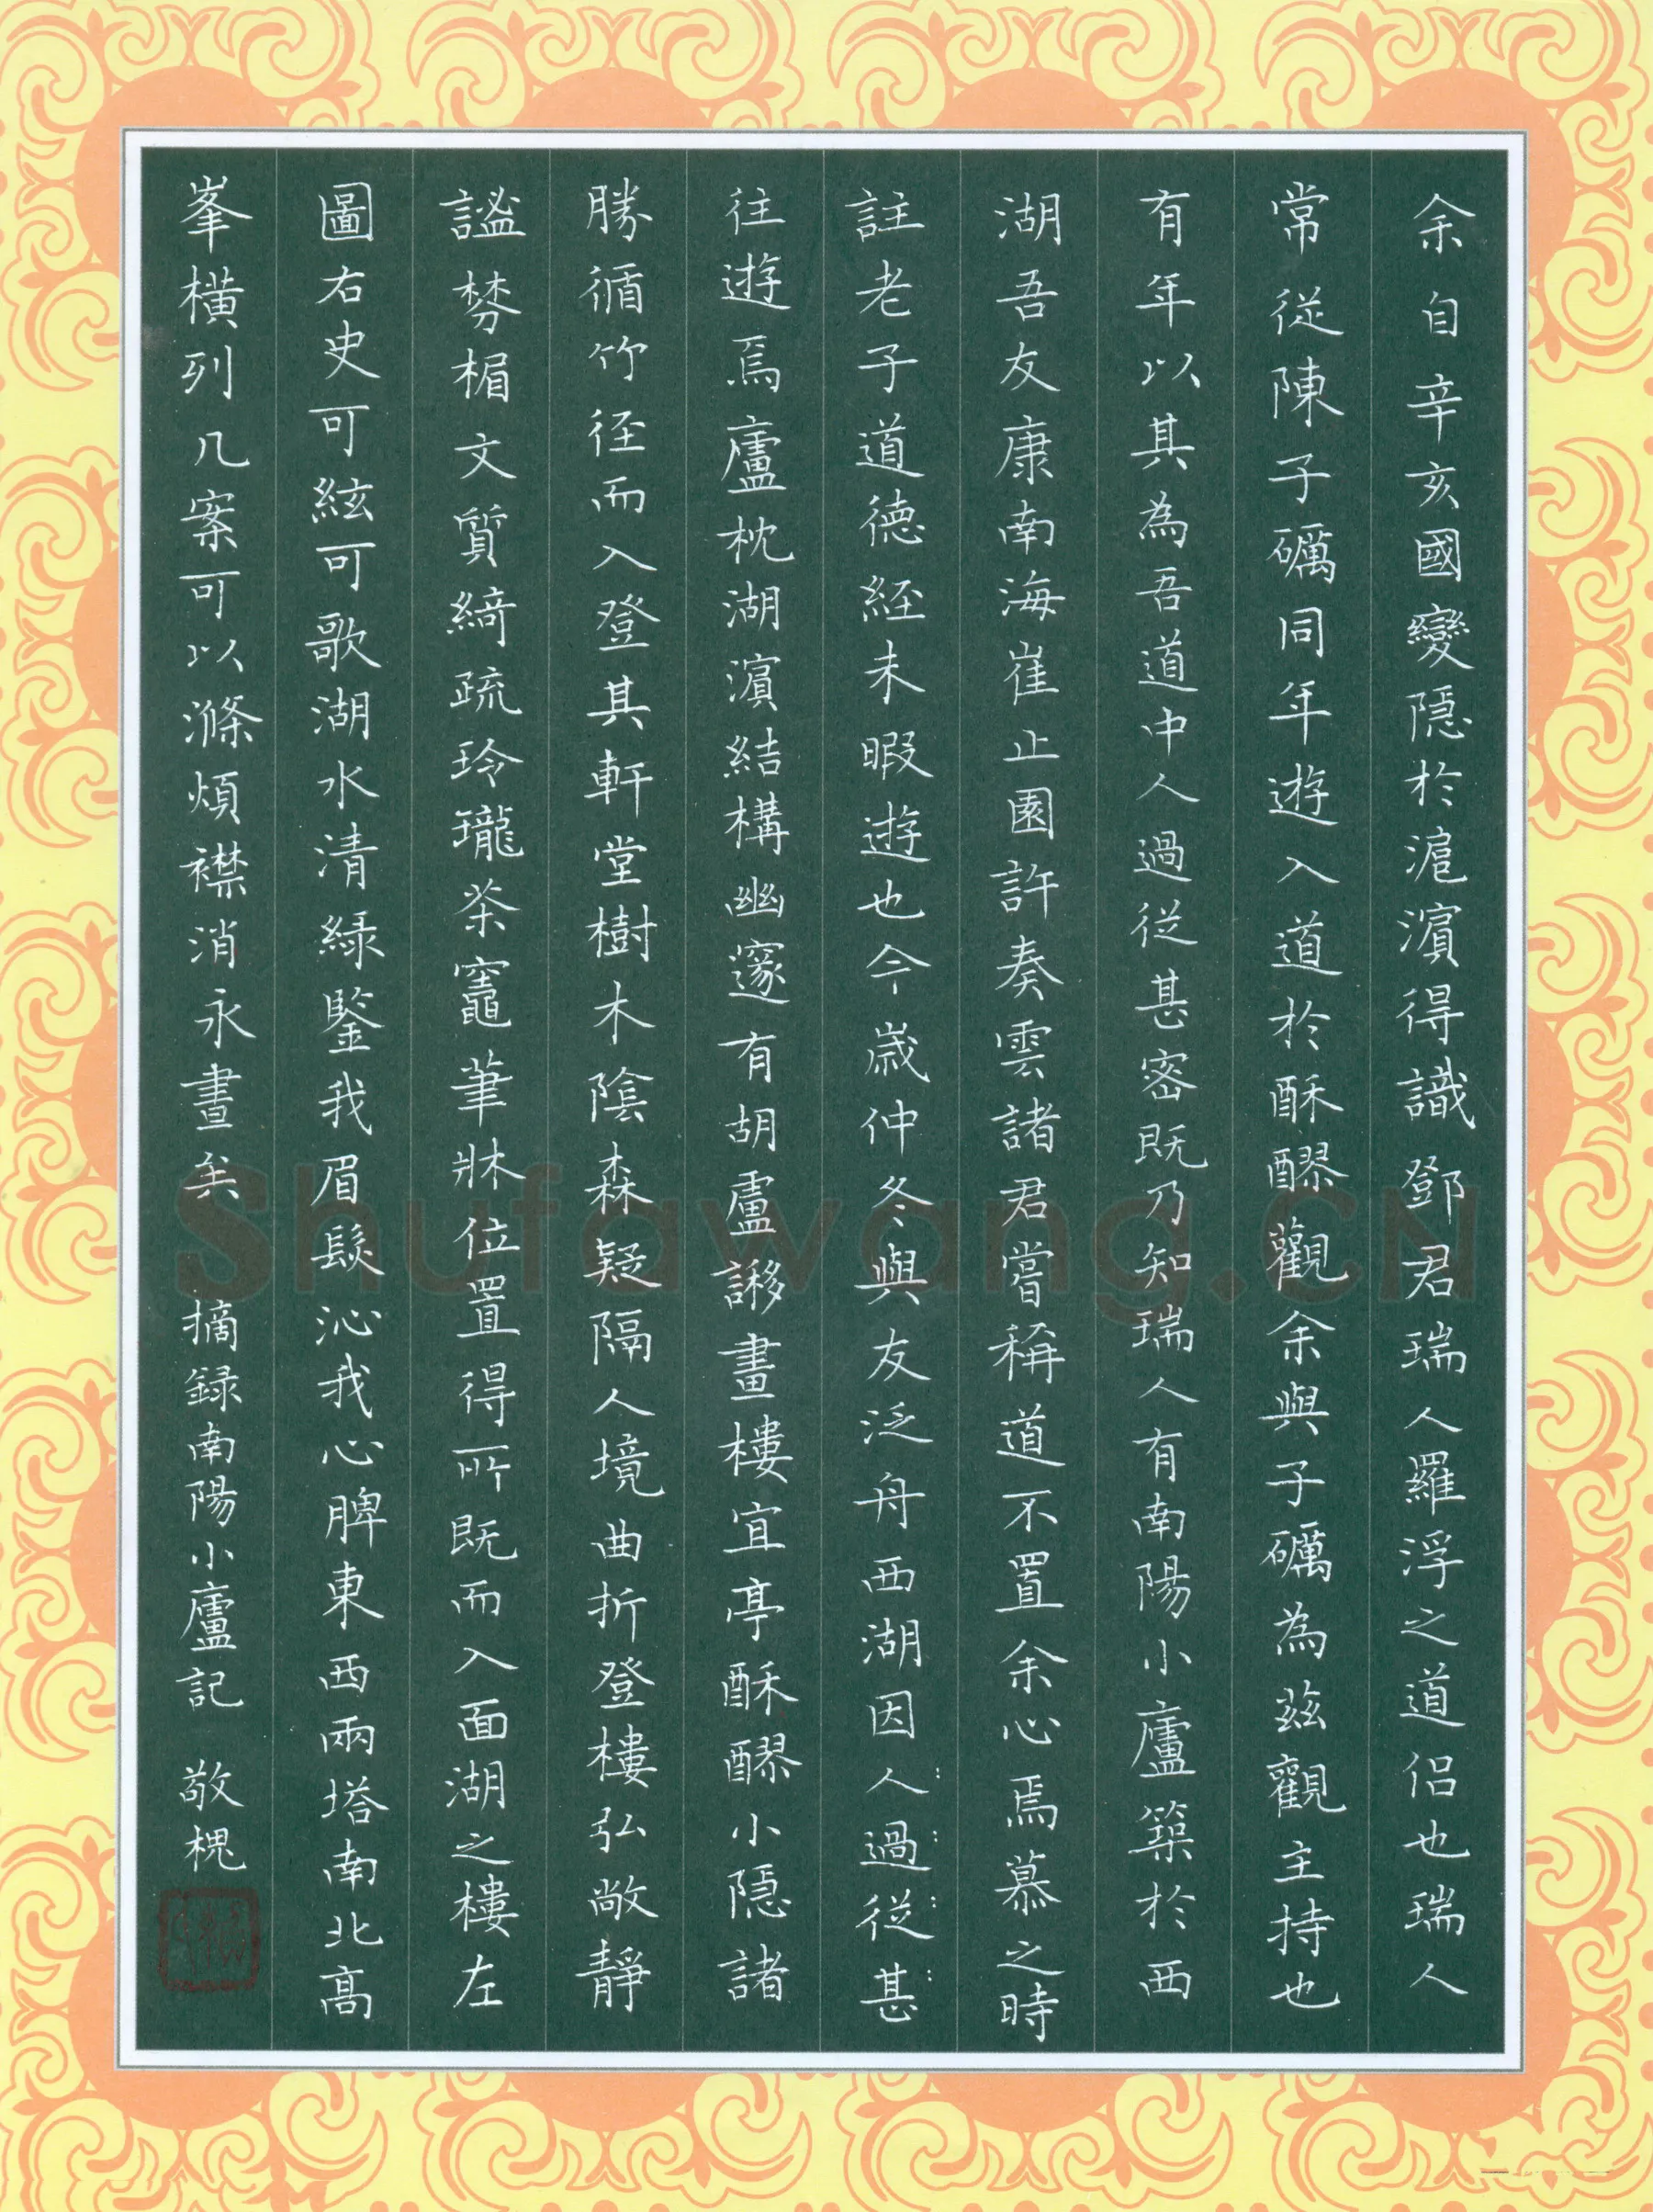 余自辛亥國變隱於滬濵得識鄧君瑞人羅浮之道侣也瑞人
常從陳子礪同年遊入道於酥醪觀余與子礪為兹觀主持也
有年以其為吾道中人過從甚密既乃知瑞人有南陽小廬築於西
湖吾友康南海崔止園許奏雲諸君嘗稱道不置余心焉慕之時
註老子道德經未暇遊也今歲仲冬與友泛舟西湖因人過從甚
往遊焉廬枕湖濵結構幽邃有胡盧謻畫樓宜亭酥醪小隱諸
勝循竹徑而入登其軒堂樹木陰森疑隔人境曲折登樓弘敞靜
謐棼楣文質綺疏玲瓏茶竈筆牀位置得所既而入面湖之樓左
圖右史可絃可歌湖水清緑鑒我眉髮沁我心脾東西兩塔南北高
峯橫列几案可以滌煩襟消永晝矣 摘録南陽小廬記 敬槐
Shufawang.CN